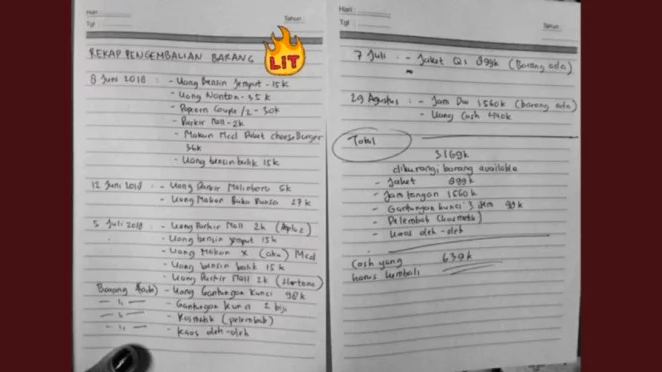 Hari :
Tgl :
Tahun :
REKAP PENGEMBALIAN BARANG
LIT
8 Juni 2018 : - Uang Bensin Jemput - 15k
- Uang Nonton - 35k
- Popcorn Couple /2 - 30k
- Parkir Mall - 2k
- Makan Mcd Paket cheeseBurger
36k
- Uang bensin balik 15k
12 Juni 2018 : - Uang Parkir Malioboro 5k
- Uang Makan Buka Puasa 27k
5 Juli 2018 : - Uang Parkir Mall 2k
- Uang bensin jemput 15k
- Uang Makan x (aku) Mcd
- Uang bensin balik 15k
- Uang Parkir Mall 2k (Hartono)
- Uang Gantungan Kunci
- Gantungan Kunci 2 biji
- Kosmetik (pelembab)
- Kaos oleh-oleh
Hari :
Tgl :
Tahun :
7 Juli : - Jaket 899k (Barang ada)
29 Agustus : - Jam 1560k (barang ada)
- Uang Cash
Total
3169k
dikurangi barang available
- Jaket 899k
- Jam tangan 1560k
- Gantungan kunci
- Pelembab (kosmetik)
- Kaos oleh-oleh
Cash yang 639k
harus kembali